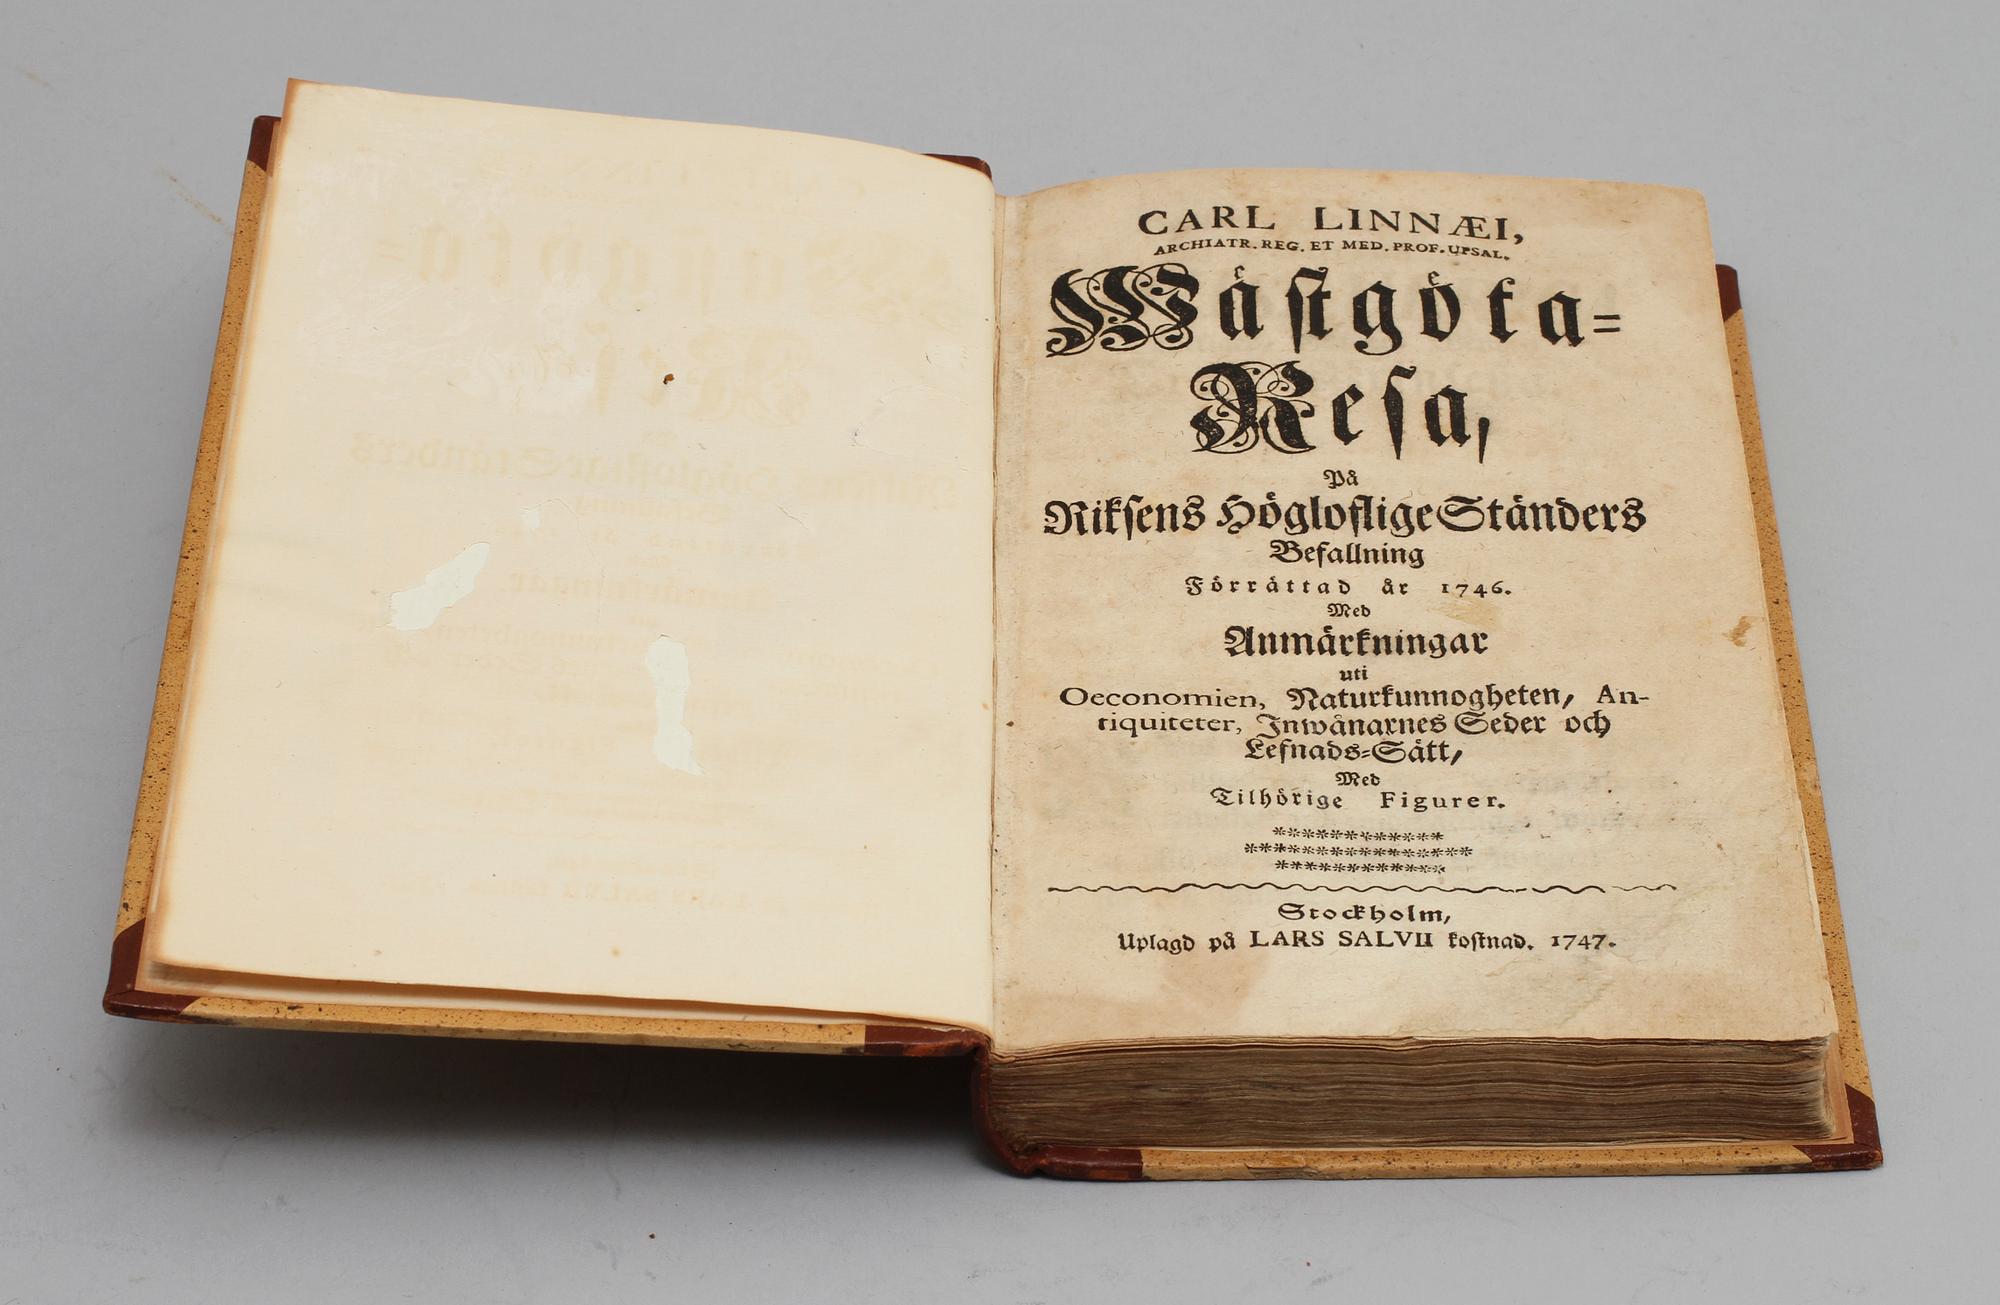 CARL LINNÆI,
ARCHIATR. REG. ET MED. PROF. UPSAL.
Wästgöta=
Resa,
På
Riksens Högloflige Ständers
Befallning
Förrättad år 1746.
Med
Anmärkningar
uti
Oeconomien, Naturkunnogheten, An-
tiquiteter, Inwånarnes Seder och
Lefnads=Sätt,
Med
Tilhörige Figurer.
************
****************
************
Stockholm,
Uplagd på LARS SALVII kostnad. 1747.